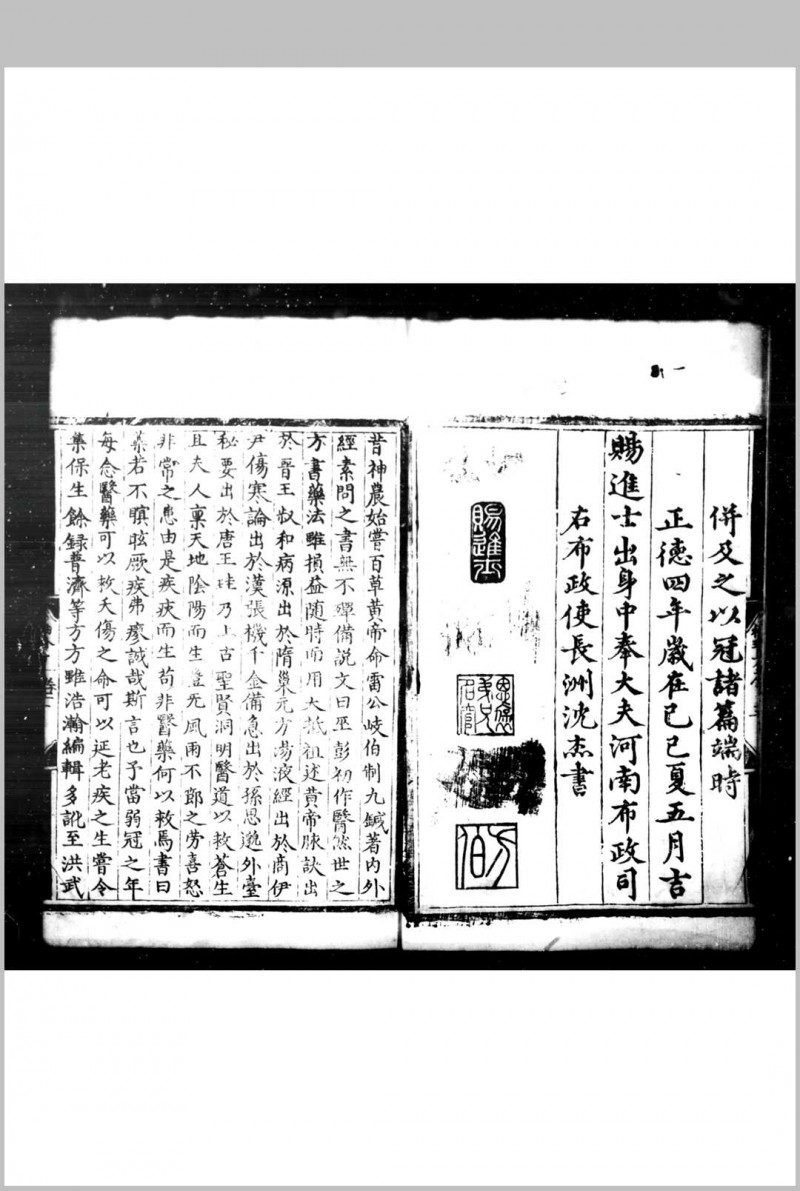 併及之以冠諸篇端時
正德四年歲在己巳夏五月吉
賜進士出身中奉大夫河南布政司
右布政使長洲沈杰書
賜進士
昔神農始嘗百草黃帝命雷公岐伯制九鍼著內外
經素問之書無不畢備說文曰巫彭初作醫然世之
方書藥法雖損益隨時而用大抵祖述黃帝脉訣出
於晉王叔和病源出於隋巢元方湯液經出於商伊
尹傷寒論出於漢張機千金備急出於孫思邈外臺
秘要出於唐王珪乃上古聖賢洞明醫道以救蒼生
且夫人稟天地陰陽而生蓋六風雨不節之勞喜怒
非常之患由是疾疢而生苟非醫藥何以救焉書曰
藥若不瞑眩厥疾弗瘳誠哉斯言也予當弱冠之年
每念醫藥可以救夭傷之命可以延老疾之生嘗令
集保生餘錄普濟等方方雖浩瀚編輯多訛至洪武